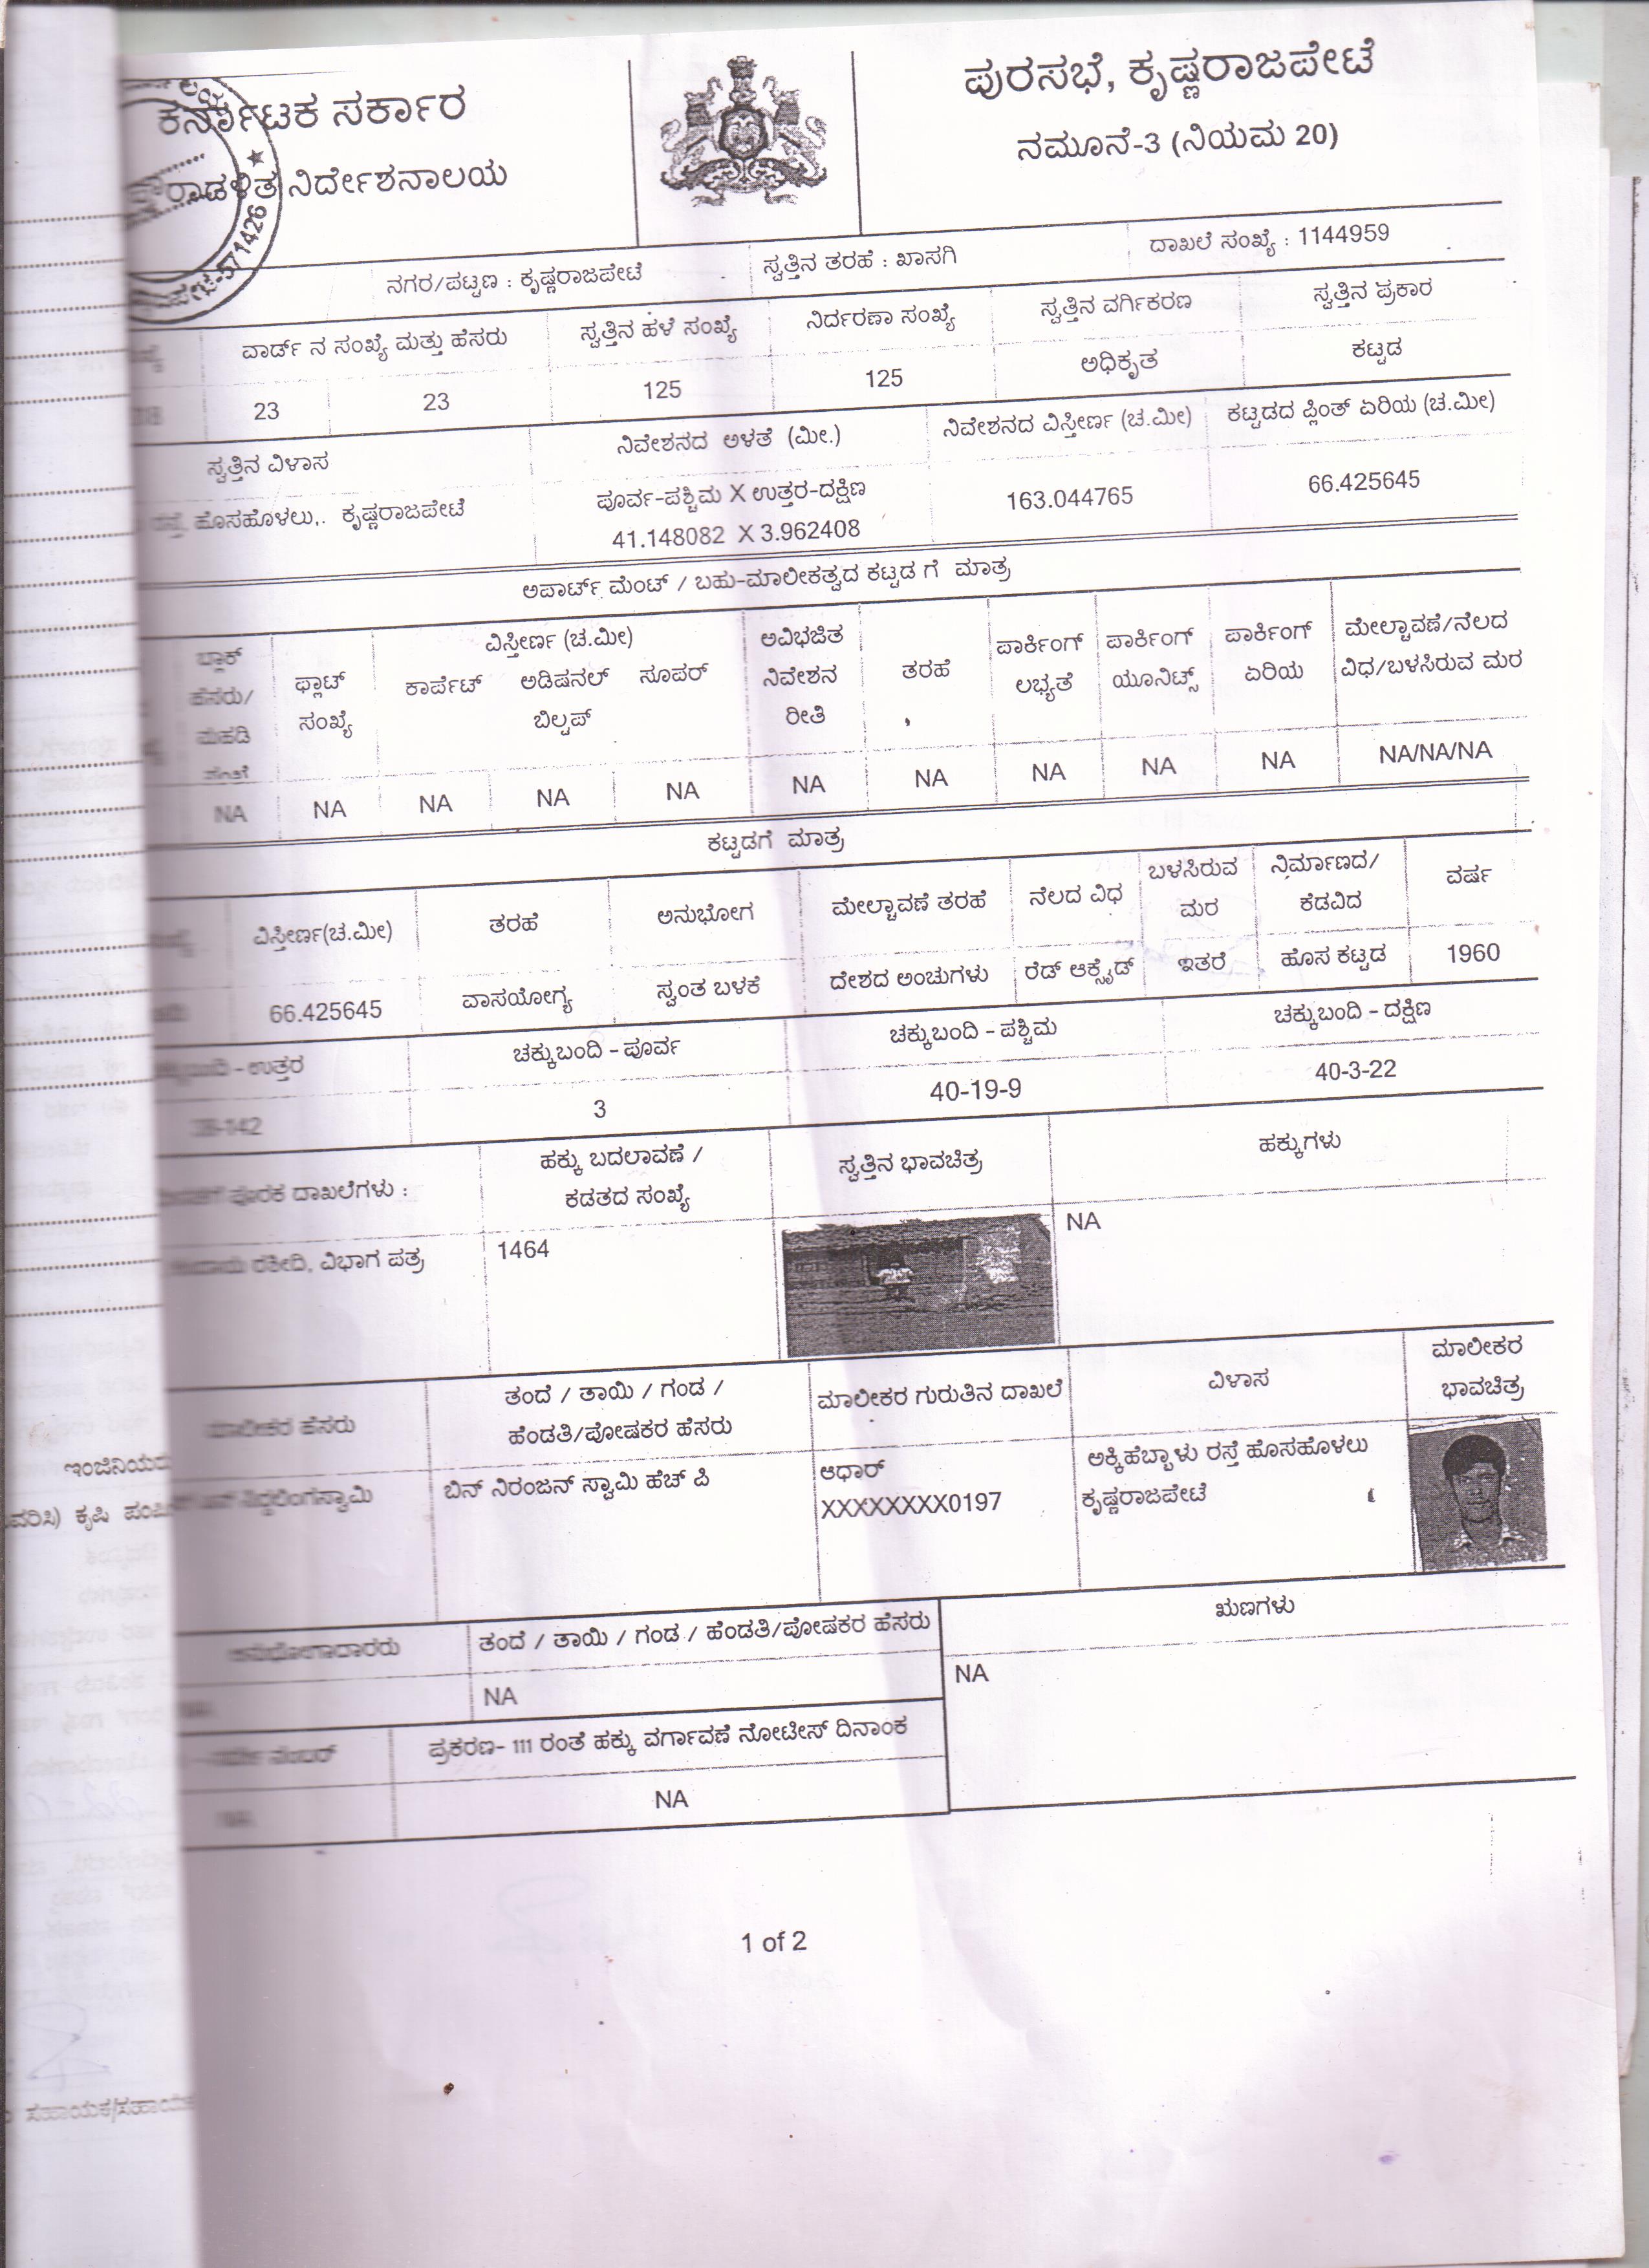 ಕರ್ನಾಟಕ ಸರ್ಕಾರ
ನಿರ್ದೇಶನಾಲಯ
571426
ಪುರಸಭೆ, ಕೃಷ್ಣರಾಜಪೇಟೆ
ನಮೂನೆ-3 (ನಿಯಮ 20)
ನಗರ/ಪಟ್ಟಣ : ಕೃಷ್ಣರಾಜಪೇಟೆ ಸ್ವತ್ತಿನ ತರಹೆ : ಖಾಸಗಿ ದಾಖಲೆ ಸಂಖ್ಯೆ : 1144959
ವಾರ್ಡ್ ನ ಸಂಖ್ಯೆ ಮತ್ತು ಹೆಸರು ಸ್ವತ್ತಿನ ಹಳೆ ಸಂಖ್ಯೆ ನಿರ್ದರಣಾ ಸಂಖ್ಯೆ ಸ್ವತ್ತಿನ ವರ್ಗಿಕರಣ ಸ್ವತ್ತಿನ ಪ್ರಕಾರ
23 23 125 125 ಅಧಿಕೃತ ಕಟ್ಟಡ
ಸ್ವತ್ತಿನ ವಿಳಾಸ ನಿವೇಶನದ ಅಳತೆ (ಮೀ.) ನಿವೇಶನದ ವಿಸ್ತೀರ್ಣ (ಚ.ಮೀ) ಕಟ್ಟಡದ ಪ್ಲಿಂತ್ ಏರಿಯ (ಚ.ಮೀ)
ಹೊಸಹೊಳಲು,. ಕೃಷ್ಣರಾಜಪೇಟೆ ಪೂರ್ವ-ಪಶ್ಚಿಮ X ಉತ್ತರ-ದಕ್ಷಿಣ 163.044765 66.425645
41.148082 X 3.962408
ಅಪಾರ್ಟ್ ಮೆಂಟ್ / ಬಹು-ಮಾಲೀಕತ್ವದ ಕಟ್ಟಡ ಗೆ ಮಾತ್ರ
ಬ್ಲಾಕ್ ವಿಸ್ತೀರ್ಣ (ಚ.ಮೀ) ಅವಿಭಜಿತ ಪಾರ್ಕಿಂಗ್ ಪಾರ್ಕಿಂಗ್ ಪಾರ್ಕಿಂಗ್ ಮೇಲ್ಚಾವಣೆ/ನೆಲದ
ಹೆಸರು/ ಫ್ಲಾಟ್ ಕಾರ್ಪೆಟ್ ಅಡಿಷನಲ್ ಸೂಪರ್ ನಿವೇಶನ ತರಹೆ ಲಭ್ಯತೆ ಯೂನಿಟ್ಸ್ ಏರಿಯ ವಿಧ/ಬಳಸಿರುವ ಮರ
ಮಹಡಿ ಸಂಖ್ಯೆ ಬಿಲ್ಟಪ್ ರೀತಿ
NA NA NA NA NA NA NA NA NA NA NA/NA/NA
ಕಟ್ಟಡಗೆ ಮಾತ್ರ
ವಿಸ್ತೀರ್ಣ(ಚ.ಮೀ) ತರಹೆ ಅನುಭೋಗ ಮೇಲ್ಚಾವಣೆ ತರಹೆ ನೆಲದ ವಿಧ ಬಳಸಿರುವ ನಿರ್ಮಾಣದ/ ವರ್ಷ
ಮರ ಕೆಡವಿದ
66.425645 ವಾಸಯೋಗ್ಯ ಸ್ವಂತ ಬಳಕೆ ದೇಶದ ಅಂಚುಗಳು ರೆಡ್ ಆಕ್ಸೈಡ್ ಇತರೆ ಹೊಸ ಕಟ್ಟಡ 1960
ಉತ್ತರ ಚಕ್ಕುಬಂದಿ - ಪೂರ್ವ ಚಕ್ಕುಬಂದಿ - ಪಶ್ಚಿಮ ಚಕ್ಕುಬಂದಿ - ದಕ್ಷಿಣ
3 40-19-9 40-3-22
ಪೂರಕ ದಾಖಲೆಗಳು : ಹಕ್ಕು ಬದಲಾವಣೆ / ಸ್ವತ್ತಿನ ಭಾವಚಿತ್ರ ಹಕ್ಕುಗಳು
ಕಡತದ ಸಂಖ್ಯೆ
ರಶೀದಿ, ವಿಭಾಗ ಪತ್ರ 1464 NA
ಮಾಲೀಕರ ಹೆಸರು ತಂದೆ / ತಾಯಿ / ಗಂಡ / ಮಾಲೀಕರ ಗುರುತಿನ ದಾಖಲೆ ವಿಳಾಸ ಮಾಲೀಕರ
ಹೆಂಡತಿ/ಪೋಷಕರ ಹೆಸರು ಭಾವಚಿತ್ರ
ಸಿದ್ದಲಿಂಗಸ್ವಾಮಿ ಬಿನ್ ನಿರಂಜನ್ ಸ್ವಾಮಿ ಹೆಚ್ ಪಿ ಆಧಾರ್ ಅಕ್ಕಿಹೆಬ್ಬಾಳು ರಸ್ತೆ ಹೊಸಹೊಳಲು
XXXXXXXX0197 ಕೃಷ್ಣರಾಜಪೇಟೆ
ಅನುಭೋಗದಾರರು ತಂದೆ / ತಾಯಿ / ಗಂಡ / ಹೆಂಡತಿ/ಪೋಷಕರ ಹೆಸರು ಋಣಗಳು
NA NA
ಪ್ರಕರಣ- 111 ರಂತೆ ಹಕ್ಕು ವರ್ಗಾವಣೆ ನೋಟೀಸ್ ದಿನಾಂಕ
NA
1 of 2